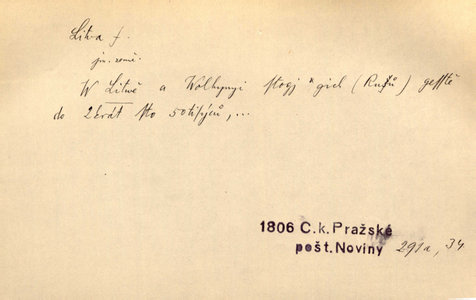 Litva f.
jm. země.
W Litwě a Wolhynyi stogj gich (Rusů) gesstě
do 2krát sto 50tisýců,...
1806 C.k.Pražské
pošt.Noviny 291a, 34